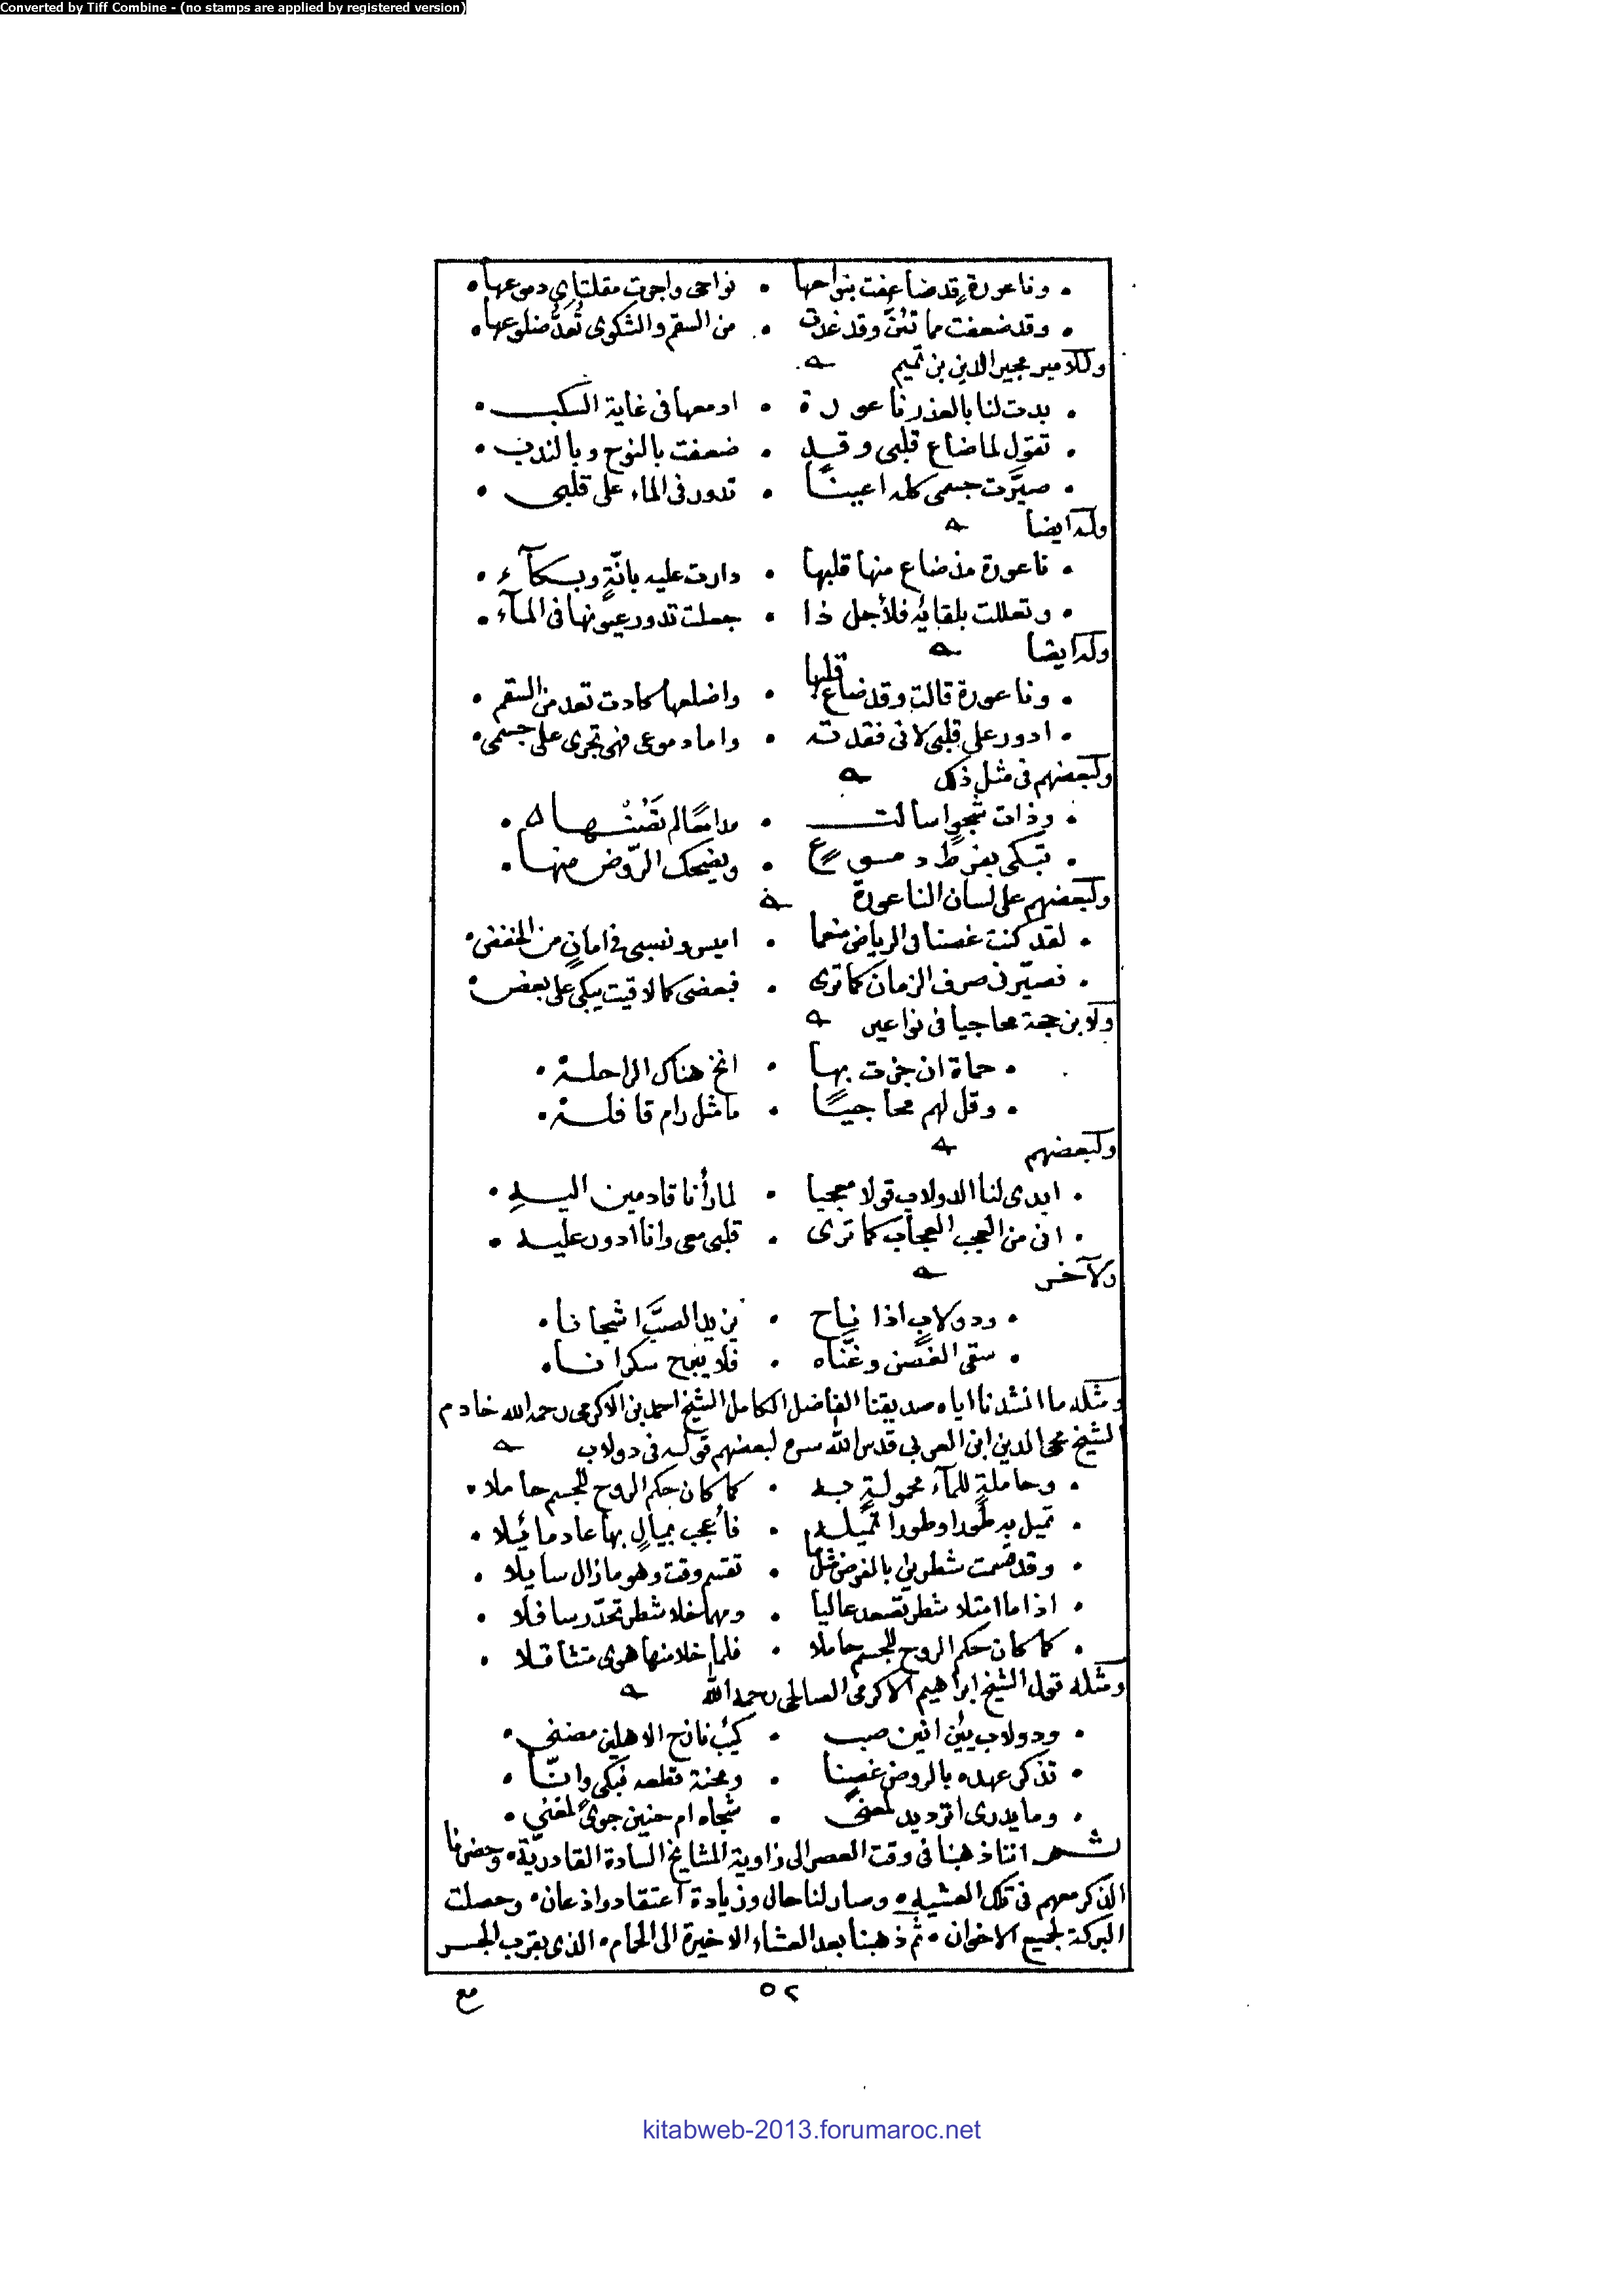 Converted by Tiff Combine - (no stamps are applied by registered version)
• وناعورة قد ضاعفت بنواحها • نواحى واجرت مقلتاى دموعها •
• وقد ضعفت مما تئنّ وقد غدت • من السقم والشكوى تُعدّ ضلوعها •
وللامير مجير الدين بن تميم
• بدت لنا بالعذر ناعورة • ادمعها فى غاية السكب •
• تقول لما ضاع قلبى وقد • ضعفت بالنوح وبالندب •
• صيّرت جسمى كله اعينا • تدور فى الماء على قلبى •
وله ايضا
• ناعورة مذ ضاع منها قلبها • دارت عليه بانّةٍ وبكآء •
• وتعللت بلقائه فلأجل ذا • جعلت تدور عيونها فى المآء •
وله ايضا
• وناعورة قالت وقد ضاع قلبها • واضلعها كادت تعد من السقم •
• ادور على قلبى لانى فقدته • واما دموعى فهى تجرى على جسمى •
ولبعضهم فى مثل ذلك
• وذات شجوٍ اسالت • مدامعًا لم تصُنْها •
• تبكى بفرط دموعٍ • ويضحك الرّوض منها •
ولبعضهم على لسان الناعورة
• لقد كنت غصنا فى الرياض منعما • اميس ونفسى فى امانٍ من الخفض •
• فصيّرنى صرف الزمان كما ترى • فبعضى كما لاقيت يبكى على بعض •
ولابن حجة محاجيا فى نواعير
• حماة ان جزت بها • انخ هناك الراحلة •
• وقل لهم محاجيًا • ما مثل رام قافلة •
ولبعضهم
• ابدى لنا الدولاب قولا معجبا • لما رأنا قادمين اليهِ •
• انى من العجب العجاب كما ترى • قلبى معى وانا ادور عليه •
ولآخر
• ودولابٍ اذا ناح • يزيد الصبَّ اشجانا •
• سقى الغصن وغنّاه • فلا يبرح سكرانا •
ومثله ما انشدنا اياه صديقنا الفاضل الكامل الشيخ احمد بن الاكرمى رحمه الله خادم
الشيخ محى الدين ابن العربى قدس الله سره لبعضهم قوله فى دولاب
• وحاملةٍ للمآء محمولةٍ به • كما كان حكم الروح للجسم حاملا •
• تميل به طورا وطورا تميله • فأعجب بميالٍ بها عاد مائلا •
• وقد قسمت شطرين بالفرض مثلما • تقسم وقت وهو مازال سايلا •
• اذا ما امتلا شطر تصعد عاليا • ومهما خلا شطر تحدّر سافلا •
• كما كان حكم الروح للجسم حاملا • فلما خلا منها هوى متثاقلا •
ومثله قول الشيخ ابراهيم الاكرمى الصالحى رحمه الله
• ودولاب يئن انين صب • كئيب نازح الاهلين مضنى •
• تذكر عهده بالروض غصنا • ومحنة قطعه فبكى وانّا •
• وما يدرى اترديد لمعنى • شجاه ام حنين جوىً لمغنى •
ثم اننا ذهبنا فى وقت العصر الى زاوية المشايخ السادة القادريّة • وحضرنا
الذكر معهم فى تلك العشيه • وصار لنا حال وزيادة اعتقاد واذعان • وحصلت
البركة لجميع الاخوان • ثم ذهبنا بعد العشاء الاخيرة الى الحمام • الذى بقرب الجسر
٥٢
مع
kitabweb-2013.forumaroc.net